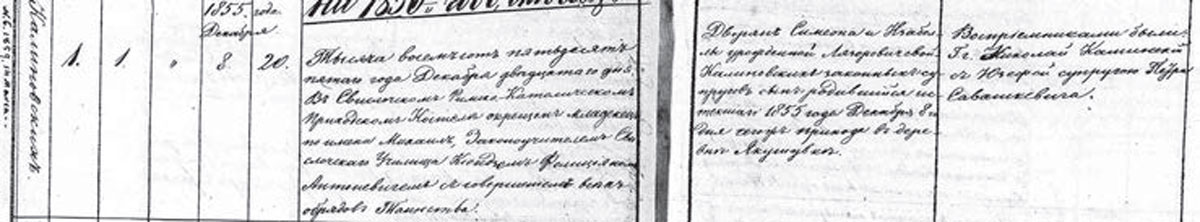 1855. года
Декабря
Калиновскихъ.
1. 1. " 8. 20.
Тысяча восемсотъ пятьдесятъ
пятаго года Декабря двадцатаго дня
Въ Свислочскомъ Римско-Католическомъ
Приходскомъ Костелѣ окрещенъ младенецъ
по имени Михаилъ, Законоучителемъ Сви-
слочскаго Училища Ксіондзомъ Фелиціяномъ
Антоневичемъ съ совершеніемъ всѣхъ
обрядовъ Таинства.
Дворянъ Симеона и Изабел-
лы урожденной
Калиновскихъ законныхъ су-
пруговъ сынъ родившійся ис-
текшаго 1855 года Декабря 8го
дня сегожъ прихода въ дерев-
нѣ Якушувкѣ.
Воспріемниками были:
Гг. Николай Калиновскій
съ Юзефой супругою Петра
Савашкевича.